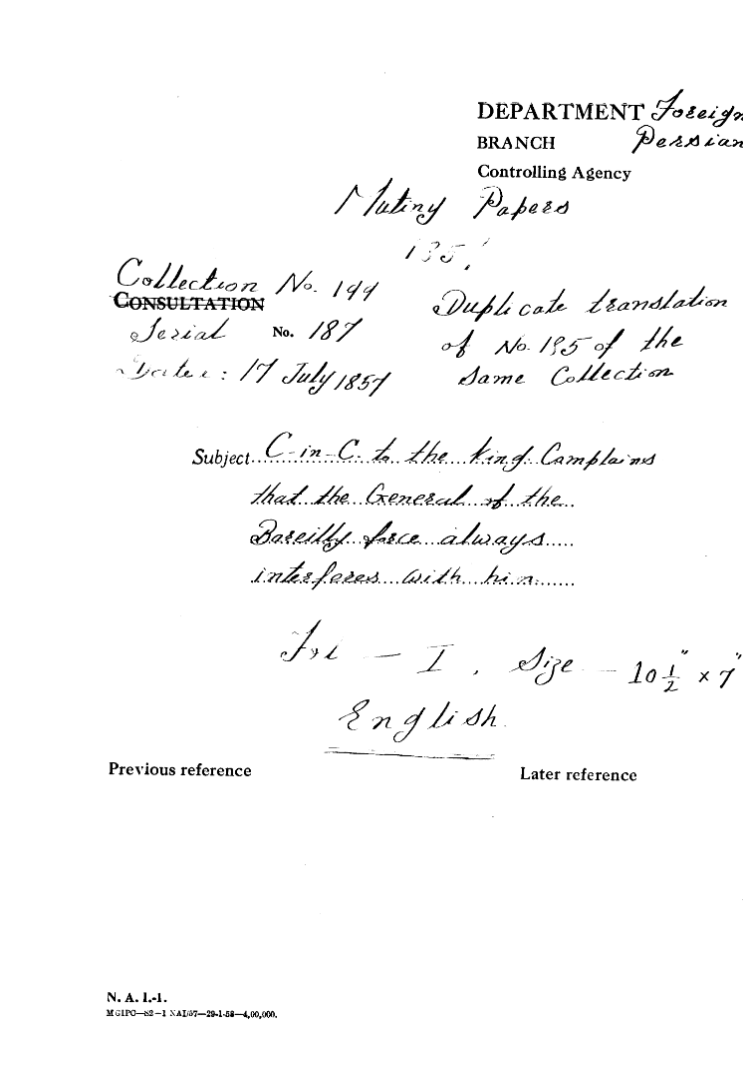 DEPARTMENT Foreign
BRANCH Persian
Controlling Agency
Mutiny Papers
Collection No. 144
CONSULTATION
Serial No. 187
Date: 17 July 1857
Duplicate translation
of No. 195 of the
Same Collection
Subject C-in-C. to the King. Complains
that the General of the
Bareilly force always
interferes with him
Fol — I, Size — 10 1/2" × 7"
English.
Previous reference
Later reference
N. A. I.-1.
MGIPC—S2—1 NAI/57—29-1-58—4,00,000.